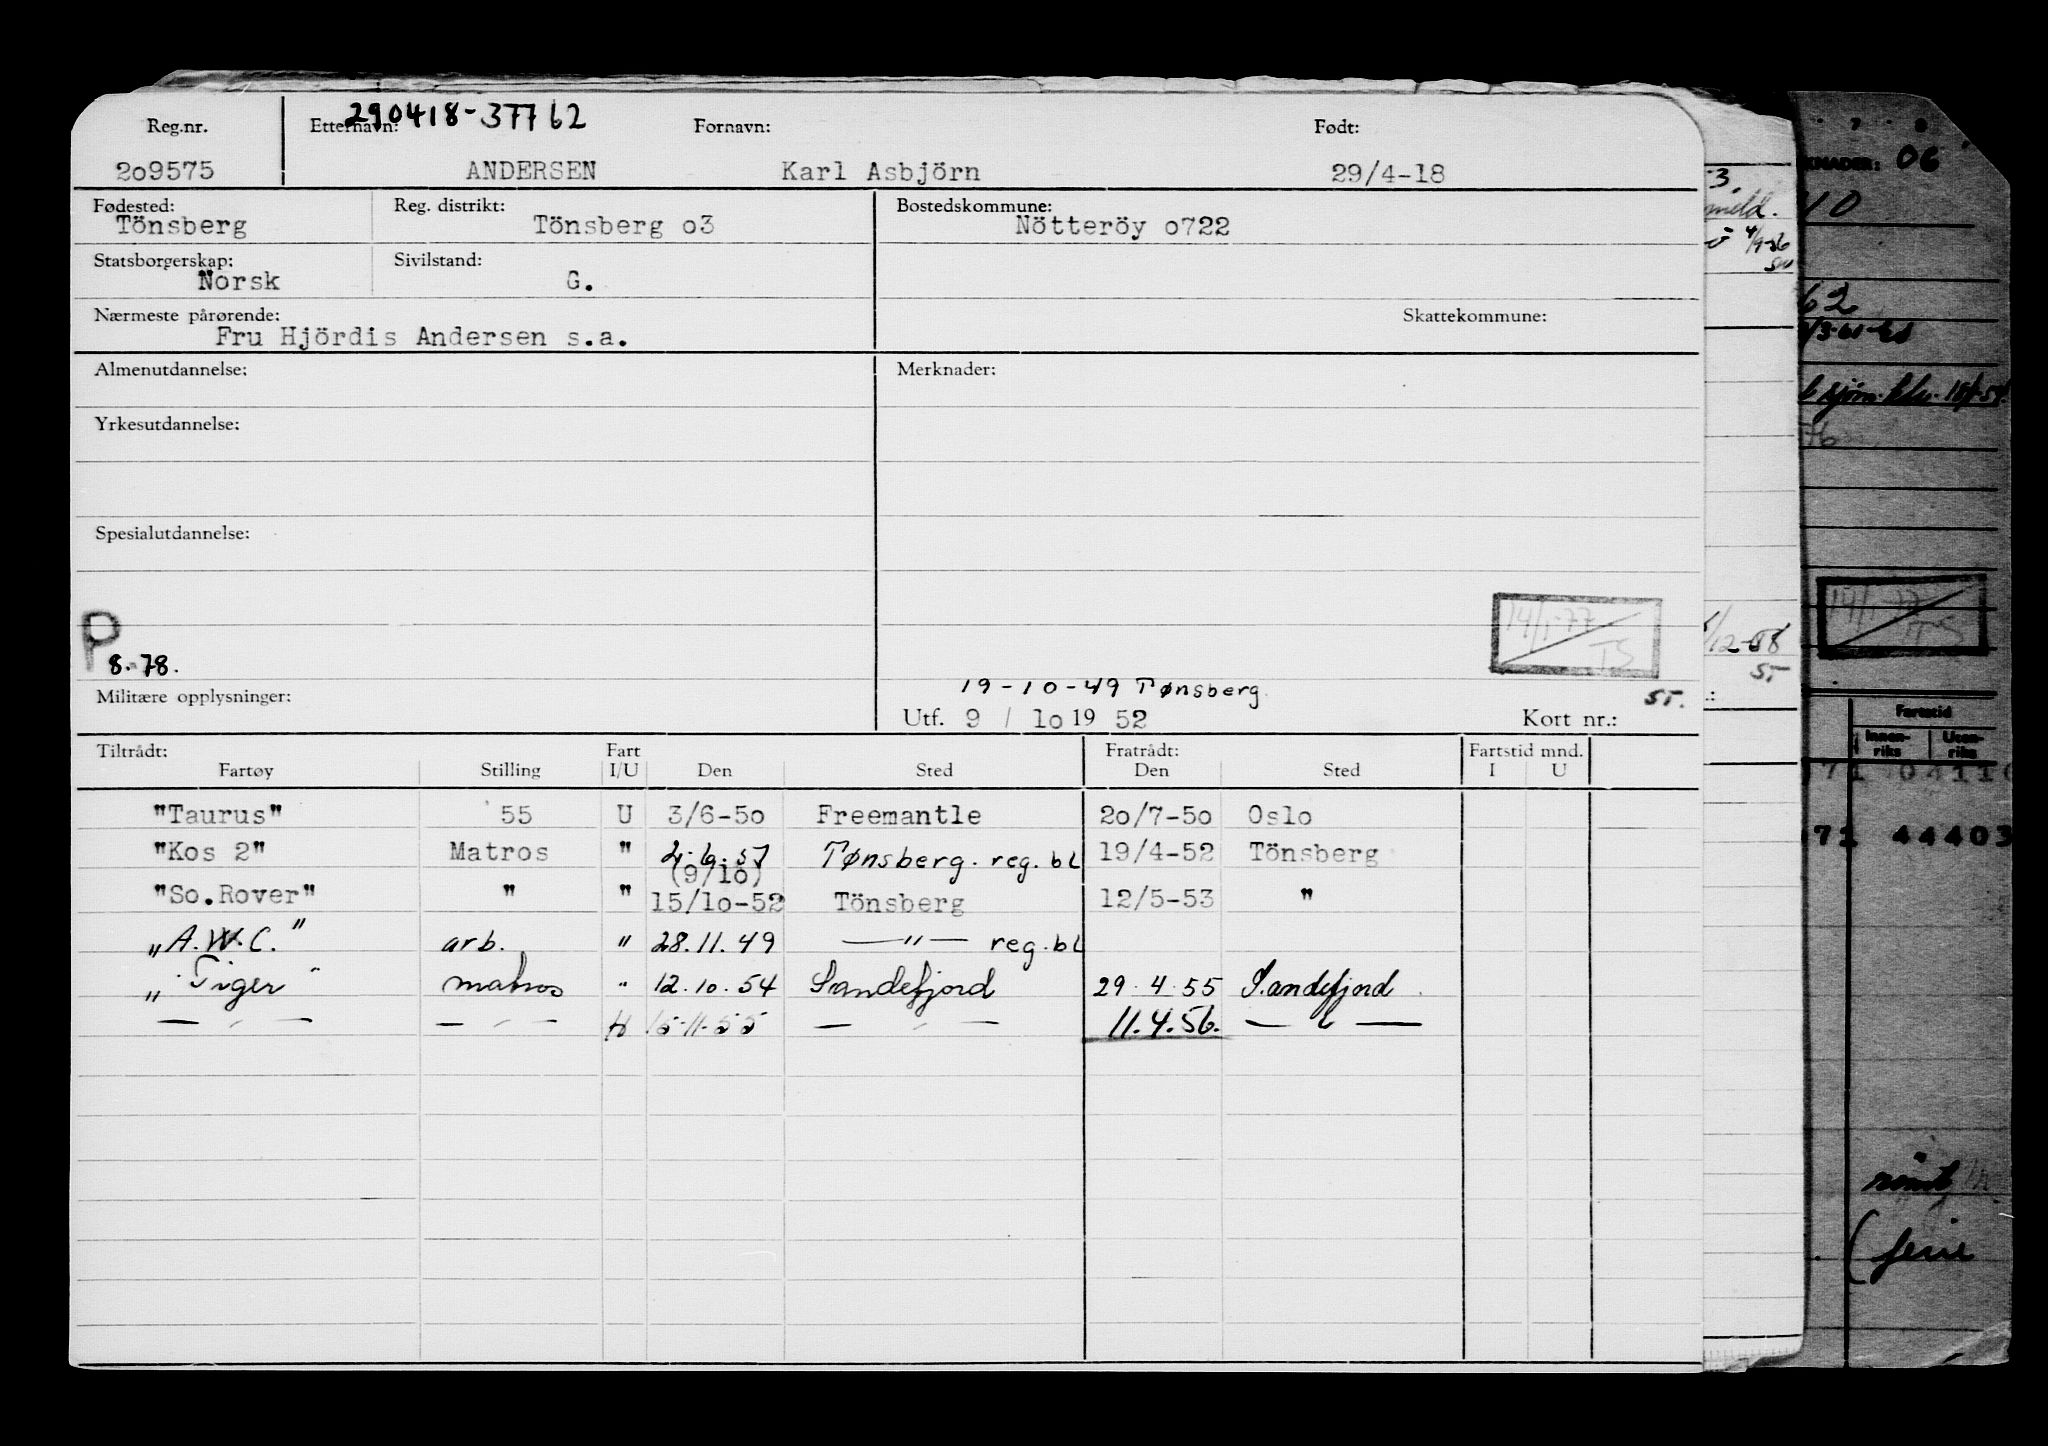 290418-37762
Reg.nr. Etternavn: Fornavn: Født:
2o9575 ANDERSEN Karl Asbjörn 29/4-18
Fødested: Reg. distrikt: Bostedskommune:
Tönsberg Tönsberg o3 Nötteröy o722
Statsborgerskap: Sivilstand:
Norsk G.
Nærmeste pårørende: Skattekommune:
Fru Hjördis Andersen s.a.
Almenutdannelse: Merknader:
Yrkesutdannelse:
Spesialutdannelse:
14/1-77
TS
P
8.78.
19-10-49 Tønsberg
ST.
Militære opplysninger: Utf. 9 / lo 19 52 Kort nr.:
Tiltrådt: Fart Fratrådt: Fartstid mnd.
Fartøy Stilling I/U Den Sted Den Sted I U
"Taurus" 55 U 3/6-5o Freemantle 2o/7-5o Oslo
"Kos 2" Matros " Tønsberg. reg. bl 19/4-52 Tönsberg
(9/lo)
"So.Rover" " " 15/lo-52 Tönsberg 12/5-53 "
"A.W.C." arb. " 28.11.49 —"— reg. bl
"Tiger" matros " 12.10.54 Sandefjord 29.4.55 Sandefjord
— " — — " — 15-11-55 — " — 11.4.56. — " —
KNADER: 06
10
62
14/1-77
TS
/12-58
ST
Fartstid
Innen-riks Uten-riks
71 04110
71 44403